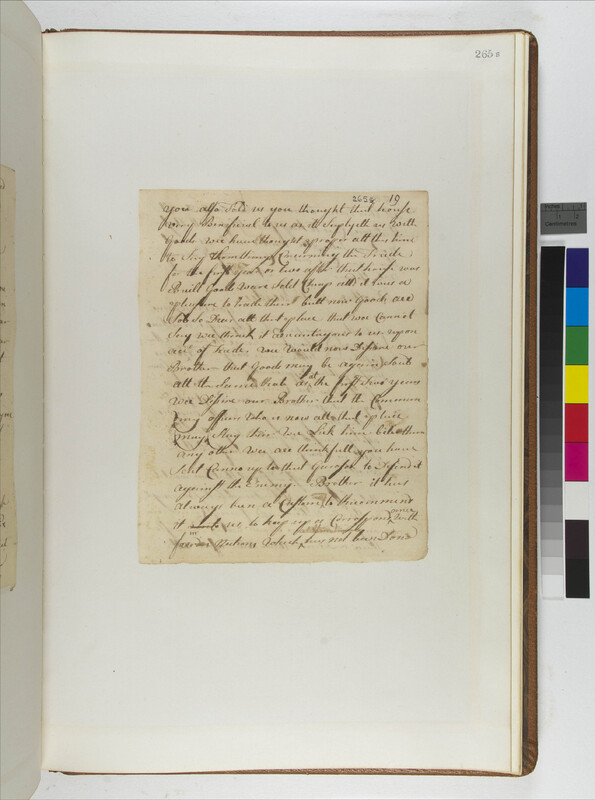 265 B
265 B 19
you also Told us you thought that house
very Benificial to us as it Suplyeth us with
Goods we have thought proper att this time
to Say Something Concerning the Trade
for the first year or two after that house was
Built Goods ware Sold Cheap att it was a
pleasure to trade there butt now Goods are
Sold So Dear att that place that we Cannot
Say we think it advantagious to us upon
acct of trade, we would now Desire our
Brother that Goods may be again Sold
att the Same Rate as att the first Two years
we Desire our Brother that the Common
ding officer Who is now att that place
may Stay their we Like him better than
any other we are thankfull you have
Sent Canno up to that Garoson to Defend it
against the Enemy Brother it has
always been a Custom to
us to keep up a Corrospondence with
Nations which has not been Done